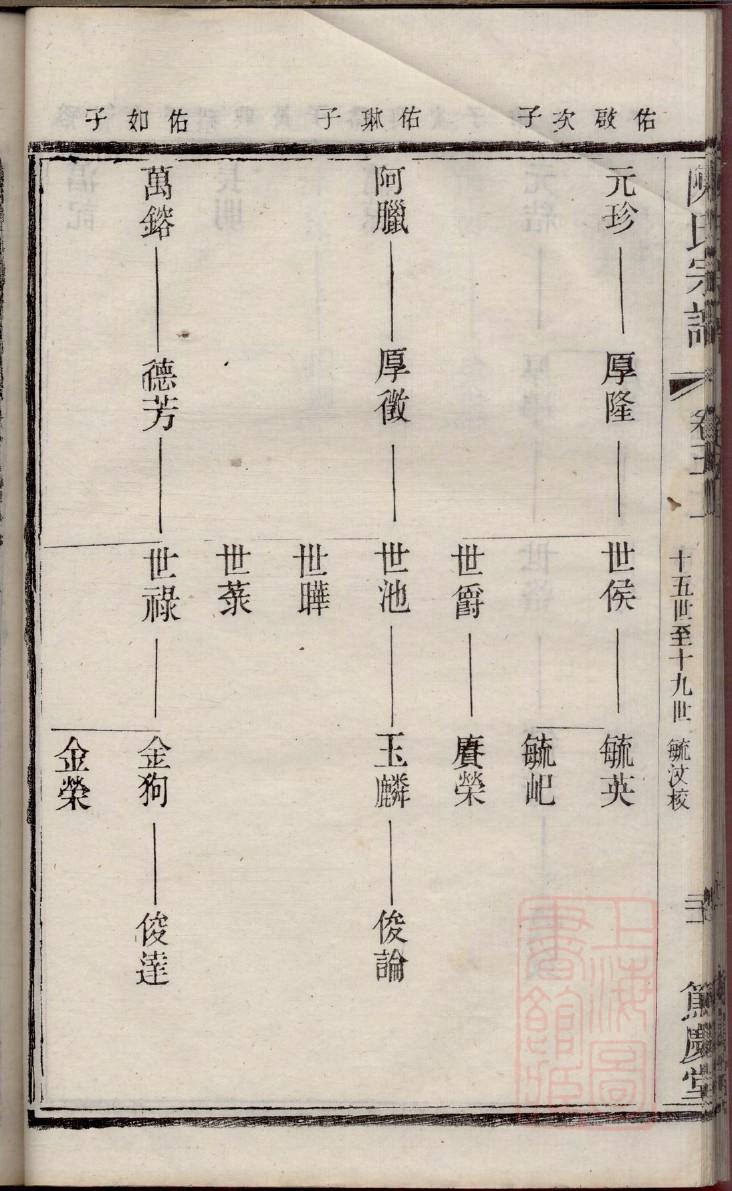 陳氏宗譜
卷五上
十五世至十九世
毓汶校
篤慶堂
佑啟次子
元珍
厚隆
世侯
毓英
毓屺
世爵
賡榮
佑琳子
阿臘
厚徵
世池
玉麟
俊論
世曄
世蕖
佑如子
萬鎔
德芳
世祿
金狗
俊達
金榮
上海圖
書館藏